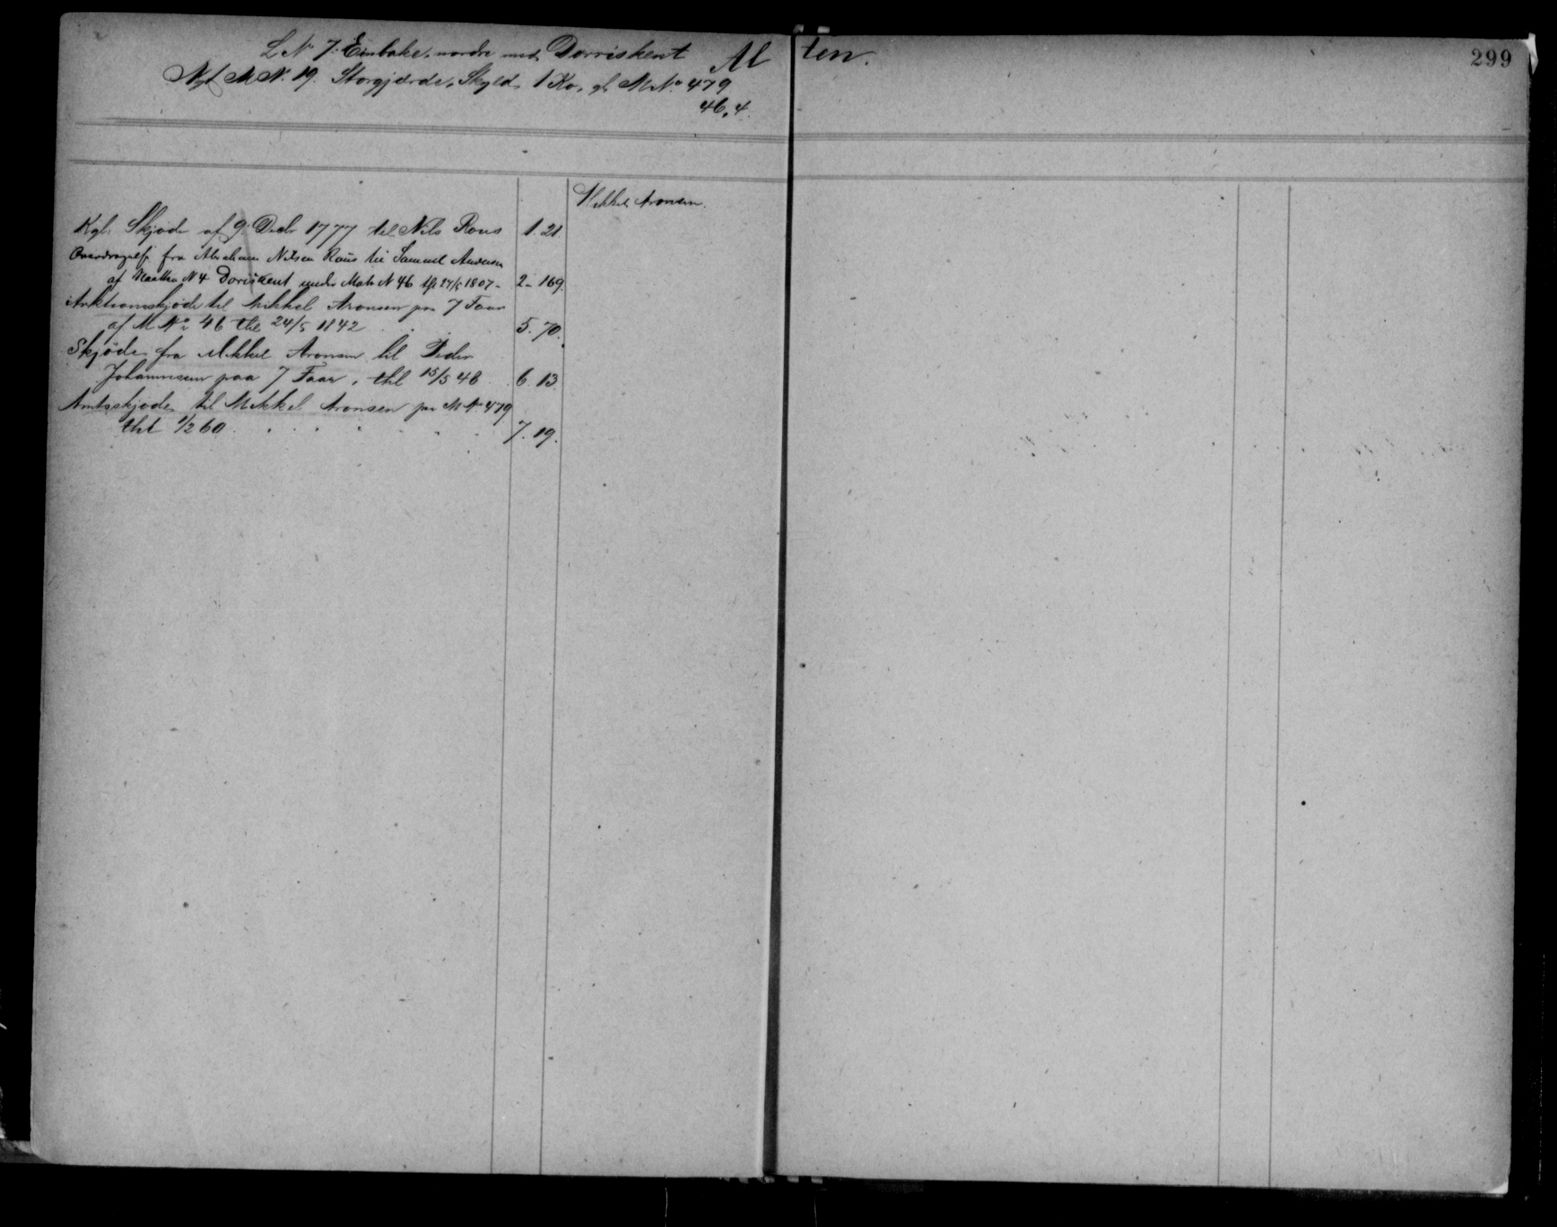 L N 7. Einbake, nordre med Dorriskent Al ten.
299
Nyt M N. 19. Storgjærde, Skyld, 1 Ko, gl. M No 479
46,4.
Mikkel Aronsen.
Kgl. Skjøde af 9. Decb 1777 til Nils Raus 1. 21
Overdragelse fra Abraham Nilsen Raus til Samuel Andersen
af N 4 Doriskent under Matr N 46 1807- 2- 169.
Auktionsskjøde til Mikkel Aronsen paa 7 Faar
af M No 46 thl 24/5 1842 5. 70.
Skjøde fra Mikkel Aronsen til Peder
Johannesen paa 7 Faar, thl 15/5 48 6. 13.
Amtsskjøde til Mikkel Aronsen paa M N. 479
thl 1/2 60. 7. 19.